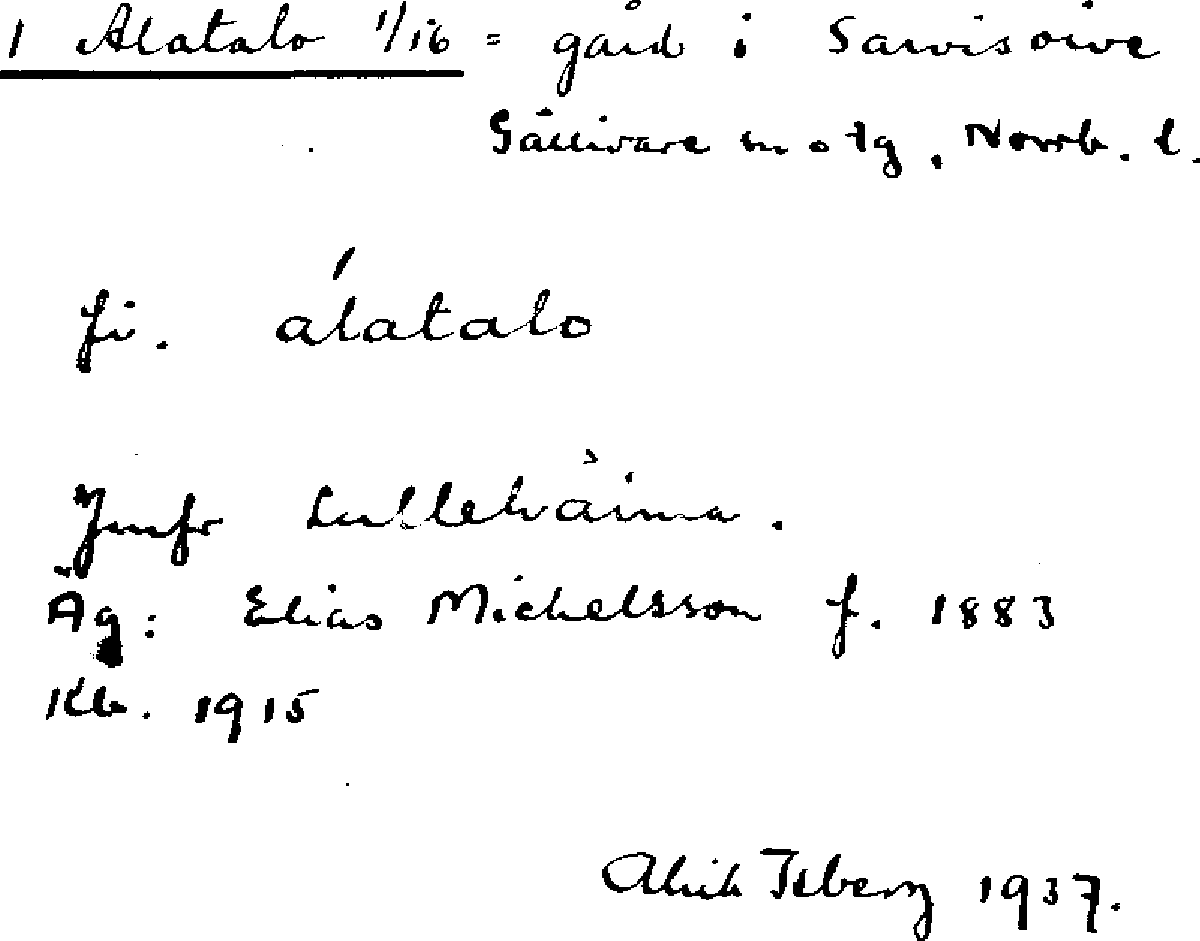 1 Alatalo 1/16 = gård i Sarvisoive
Gällivare sn o tg, Norrb. l.
fi. álatalo
Jmfr Lullehàima.
Äg: Elias Michelsson f. 1883
Kb. 1915
Alrik Isberg 1937.